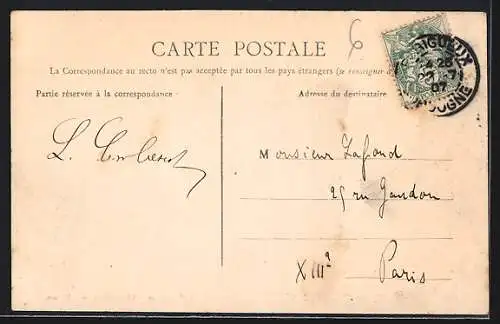 6
CARTE POSTALE
La Correspondance au recto n'est pas acceptée par tous les pays étrangers (se renseigner à
Partie réservée à la correspondance
Adresse du destinataire
RIGUEUX
4 25
23 - 7
07
DOGNE
L.
Monsieur Lafond
25 rue Gandon
XIIIe
Paris